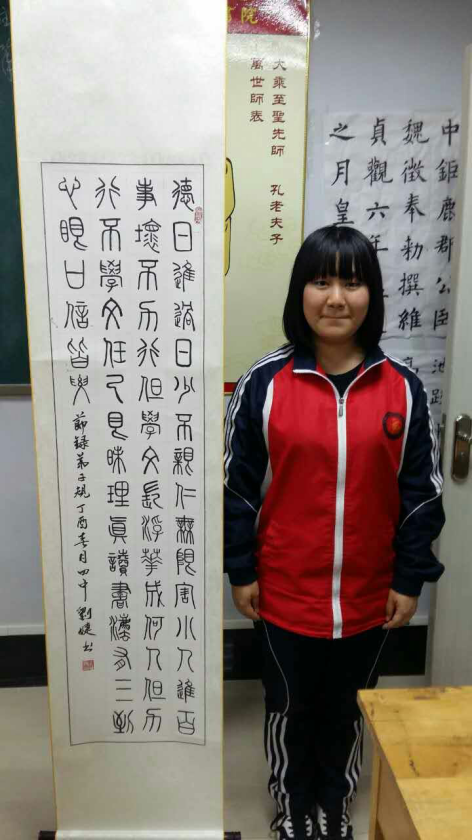 書院
大乘至聖先師 孔老夫子
萬世師表
中鉅鹿郡公臣
魏徵奉勅撰維
貞觀六年
之月皇
德日進過日少不親仁無限害小人進百
事壞不力行但學文長浮華成何人但力
行不學文任己見昧理真讀書法有三到
心眼口信皆要
節録弟子規丁酉春月四中劉婕书